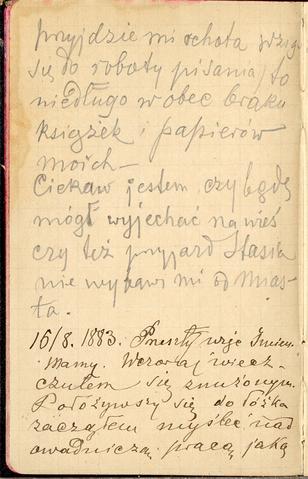 przyjdzie mi ochota wziąć
się do roboty pisania, to
niedługo wobec braku
książek i papierów
moich —
Ciekaw jestem, czy będę
mógł wyjechać na wieś
czy też przyjazd Stasia
nie wybawi mi od mias-
ta.
16/8. 1883. Przeszły więc Imien.
Mamy. Wczoraj wiecz-
czułem się znużonym.
Położywszy się do łóżka
zacząłem myśleć nad
owadniczą pracą, jaką